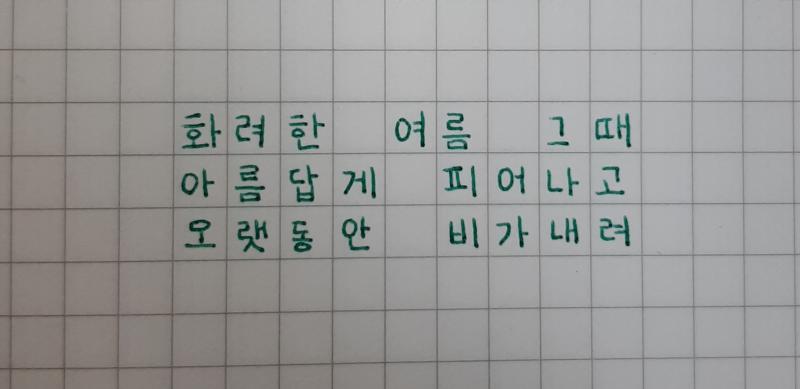 화려한 여름 그때
아름답게 피어나고
오랫동안 비가내려